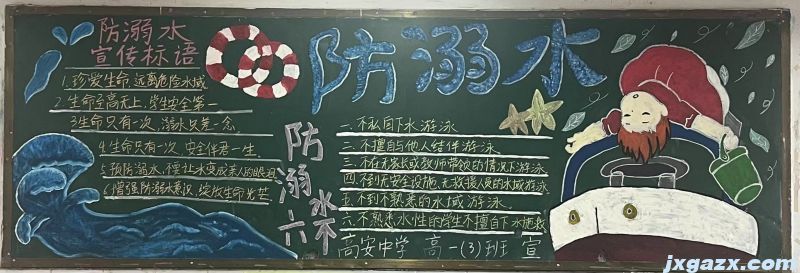 防溺水
宣传标语
1.珍爱生命,远离危险水域
2.生命至高无上,学生安全第一
3.生命只有一次,溺水只差一念。
4.生命只有一次 安全伴君一生。
5.预防溺水,不要让水变成亲人的眼泪
6.增强防溺水意识,绽放生命光芒
防溺水
防溺水六不
一.不私自下水游泳
二.不擅自与他人结伴游泳。
三.不在无家长或教师带领的情况下游泳
四.不到无安全设施、无救援人员的水域游泳
五.不到不熟悉的水域游泳。
六.不熟悉水性的学生不擅自下水施救
高安中学 高一(3)班 宣
jxgazx.com